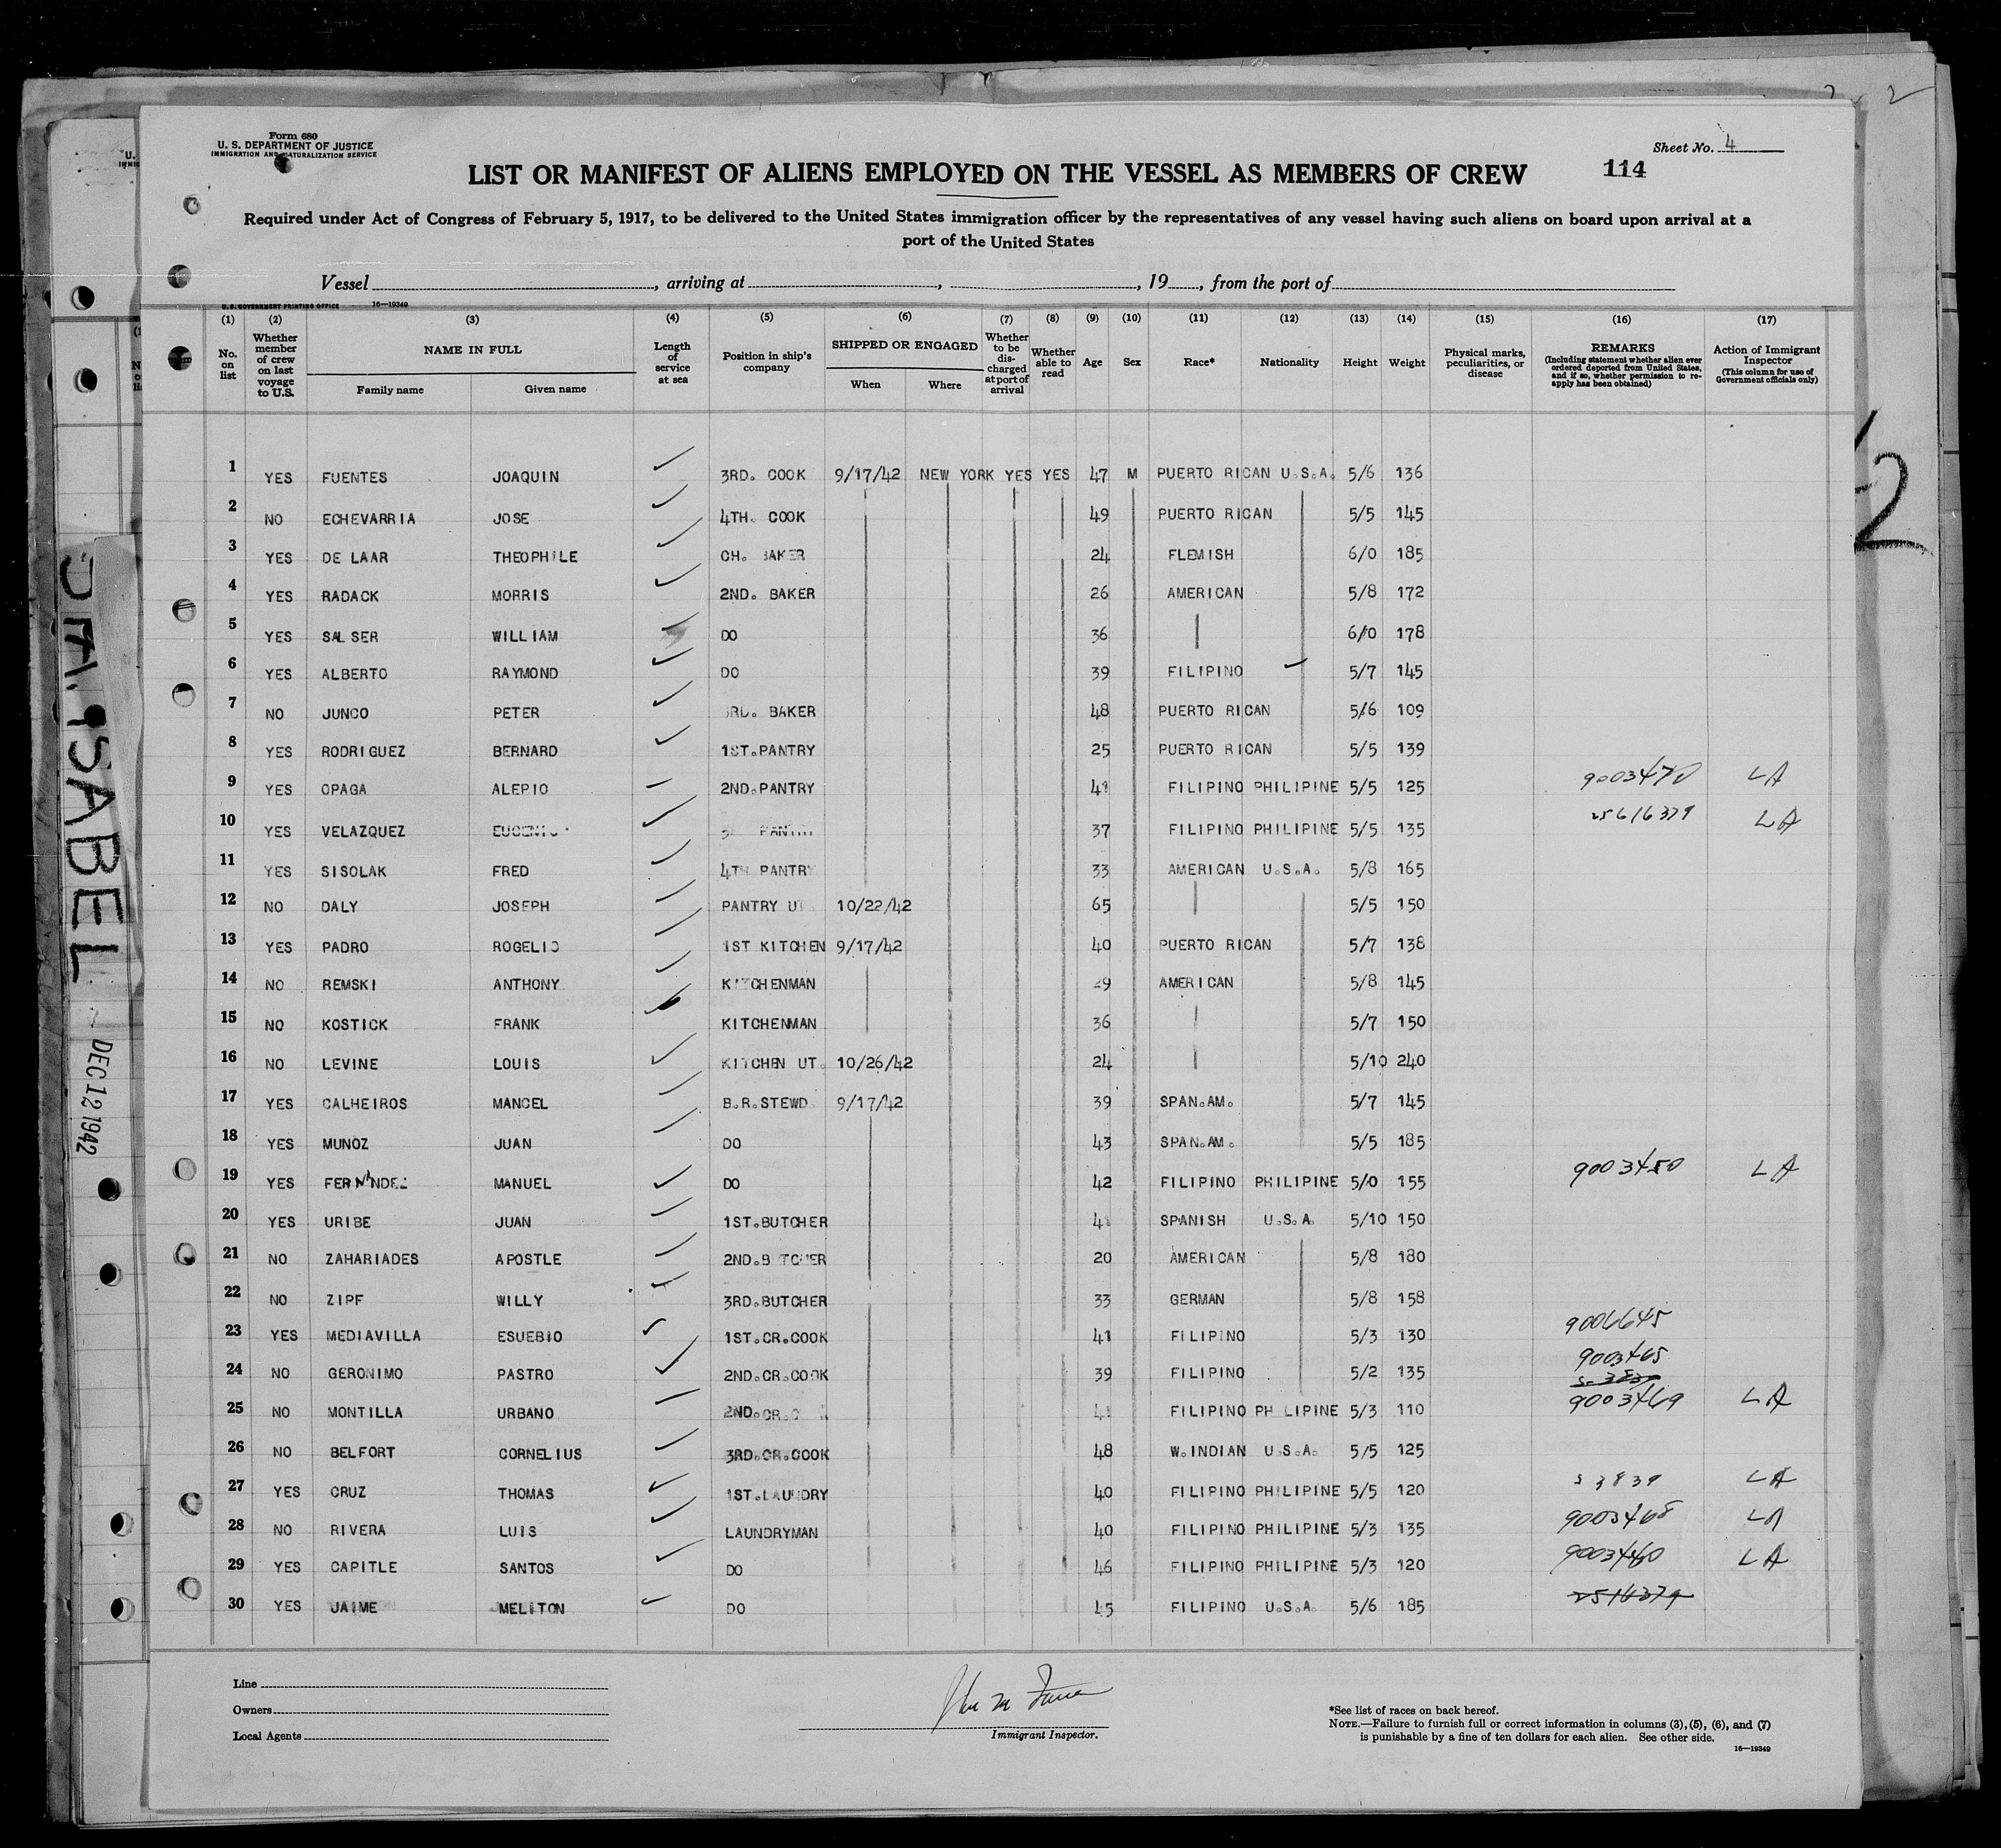 Form 680
U. S. DEPARTMENT OF JUSTICE
IMMIGRATION AND NATURALIZATION SERVICE
Sheet No. 4
LIST OR MANIFEST OF ALIENS EMPLOYED ON THE VESSEL AS MEMBERS OF CREW
114
Required under Act of Congress of February 5, 1917, to be delivered to the United States immigration officer by the representatives of any vessel having such aliens on board upon arrival at a
port of the United States
Vessel , arriving at , , 19 , from the port of
U.S. GOVERNMENT PRINTING OFFICE 16—19349
(1) (2) (3) (4) (5) (6) (7) (8) (9) (10) (11) (12) (13) (14) (15) (16) (17)
No. on list
Whether member of crew on last voyage to U.S.
NAME IN FULL
Family name Given name
Length of service at sea
Position in ship's company
SHIPPED OR ENGAGED
When Where
Whether to be discharged at port of arrival
Whether able to read
Age Sex Race* Nationality Height Weight
Physical marks, peculiarities, or disease
REMARKS
(Including statement whether alien ever ordered deported from United States, and if so, whether permission to reapply has been obtained)
Action of Immigrant Inspector
(This column for use of Government officials only)
1 YES FUENTES JOAQUIN 3RD. COOK 9/17/42 NEW YORK YES YES 47 M PUERTO RICAN U.S.A. 5/6 136
2 NO ECHEVARRIA JOSE 4TH. COOK 49 PUERTO RICAN 5/5 145
3 YES DE LAAR THEOPHILE CH. BAKER 24 FLEMISH 6/0 185
4 YES RADACK MORRIS 2ND. BAKER 26 AMERICAN 5/8 172
5 YES SALSER WILLIAM DO 36 6/0 178
6 YES ALBERTO RAYMOND DO 39 FILIPINO 5/7 145
7 NO JUNCO PETER 3RD. BAKER 48 PUERTO RICAN 5/6 109
8 YES RODRIGUEZ BERNARD 1ST.PANTRY 25 PUERTO RICAN 5/5 139
9 YES OPAGA ALEPIO 2ND.PANTRY 41 FILIPINO PHILIPINE 5/5 125 9003470 LA
10 YES VELAZQUEZ EUGENIO PANTRY 37 FILIPINO PHILIPINE 5/5 135 25616379 LA
11 YES SISOLAK FRED 4TH PANTRY 33 AMERICAN U.S.A. 5/8 165
12 NO DALY JOSEPH PANTRY UT 10/22/42 65 5/5 150
13 YES PADRO ROGELIO 1ST KITCHEN 9/17/42 40 PUERTO RICAN 5/7 138
14 NO REMSKI ANTHONY KITCHENMAN 29 AMERICAN 5/8 145
15 NO KOSTICK FRANK KITCHENMAN 36 5/7 150
16 NO LEVINE LOUIS KITCHEN UT. 10/26/42 24 5/10 240
17 YES CALHEIROS MANOEL B.R.STEWD. 9/17/42 39 SPAN.AM. 5/7 145
18 YES MUNOZ JUAN DO 43 SPAN.AM. 5/5 185
19 YES FERNANDEZ MANUEL DO 42 FILIPINO PHILIPINE 5/0 155 9003450 LA
20 YES URIBE JUAN 1ST.BUTCHER 41 SPANISH U.S.A. 5/10 150
21 NO ZAHARIADES APOSTLE 2ND.BUTCHER 20 AMERICAN 5/8 180
22 NO ZIPF WILLY 3RD.BUTCHER 33 GERMAN 5/8 158
23 YES MEDIAVILLA ESUEBIO 1ST.CR.COOK 41 FILIPINO 5/3 130 9006645
24 NO GERONIMO PASTRO 2ND.CR.COOK 39 FILIPINO 5/2 135 9003465
25 NO MONTILLA URBANO 2ND.CR. 41 FILIPINO PHILIPINE 5/3 110 9003469 LA
26 NO BELFORT CORNELIUS 3RD.CR.COOK 48 W.INDIAN U.S.A. 5/5 125
27 YES CRUZ THOMAS 1ST.LAUNDRY 40 FILIPINO PHILIPINE 5/5 120 S 3839 LA
28 NO RIVERA LUIS LAUNDRYMAN 40 FILIPINO PHILIPINE 5/3 135 9003468 LA
29 YES CAPITLE SANTOS DO 46 FILIPINO PHILIPINE 5/3 120 9003460 LA
30 YES JAIME MELITON DO 45 FILIPINO U.S.A. 5/6 185 2516379
Line
Owners
Local Agents
Immigrant Inspector.
*See list of races on back hereof.
NOTE.—Failure to furnish full or correct information in columns (3), (5), (6), and (7)
is punishable by a fine of ten dollars for each alien. See other side.
16—19349
ISABEL
DEC 12 1942
2